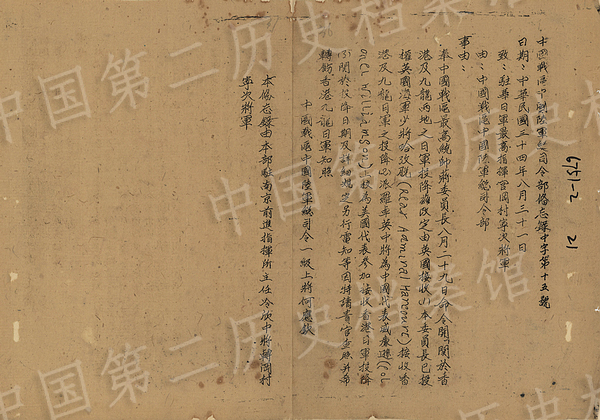 中國戰區中國陸軍總司令部備忘錄中字第十五號
日期：中華民國三十四年八月三十一日
致：駐華日軍最高指揮官岡村寧次將軍
由：中國戰區中國陸軍總司令部
事由：
奉中國戰區最高統帥蔣委員長八月二十九日命令開關於香
港及九龍兩地之日軍投降茲改定由英國接收(1)本委員長已授
權英國海軍少將哈考脫(Rear Admiral Harcourt)接收香
港及九龍日軍之投降(2)派羅卓英中將為中國代表威廉遜(Col
onel Williamson)上校為美國代表參加接收香港日軍投降
(3)關於投降日期及詳細規定另行電知等因特請貴官查照并希
轉飭香港九龍日軍知照
中國戰區中國陸軍總司令一級上將何應欽
本備忘錄由本部駐南京前進指揮所主任冷欣中將轉岡村
寧次將軍
6751-2 21
中国第二历史档案馆
中国第二历史档案馆
中国第二历史档案馆